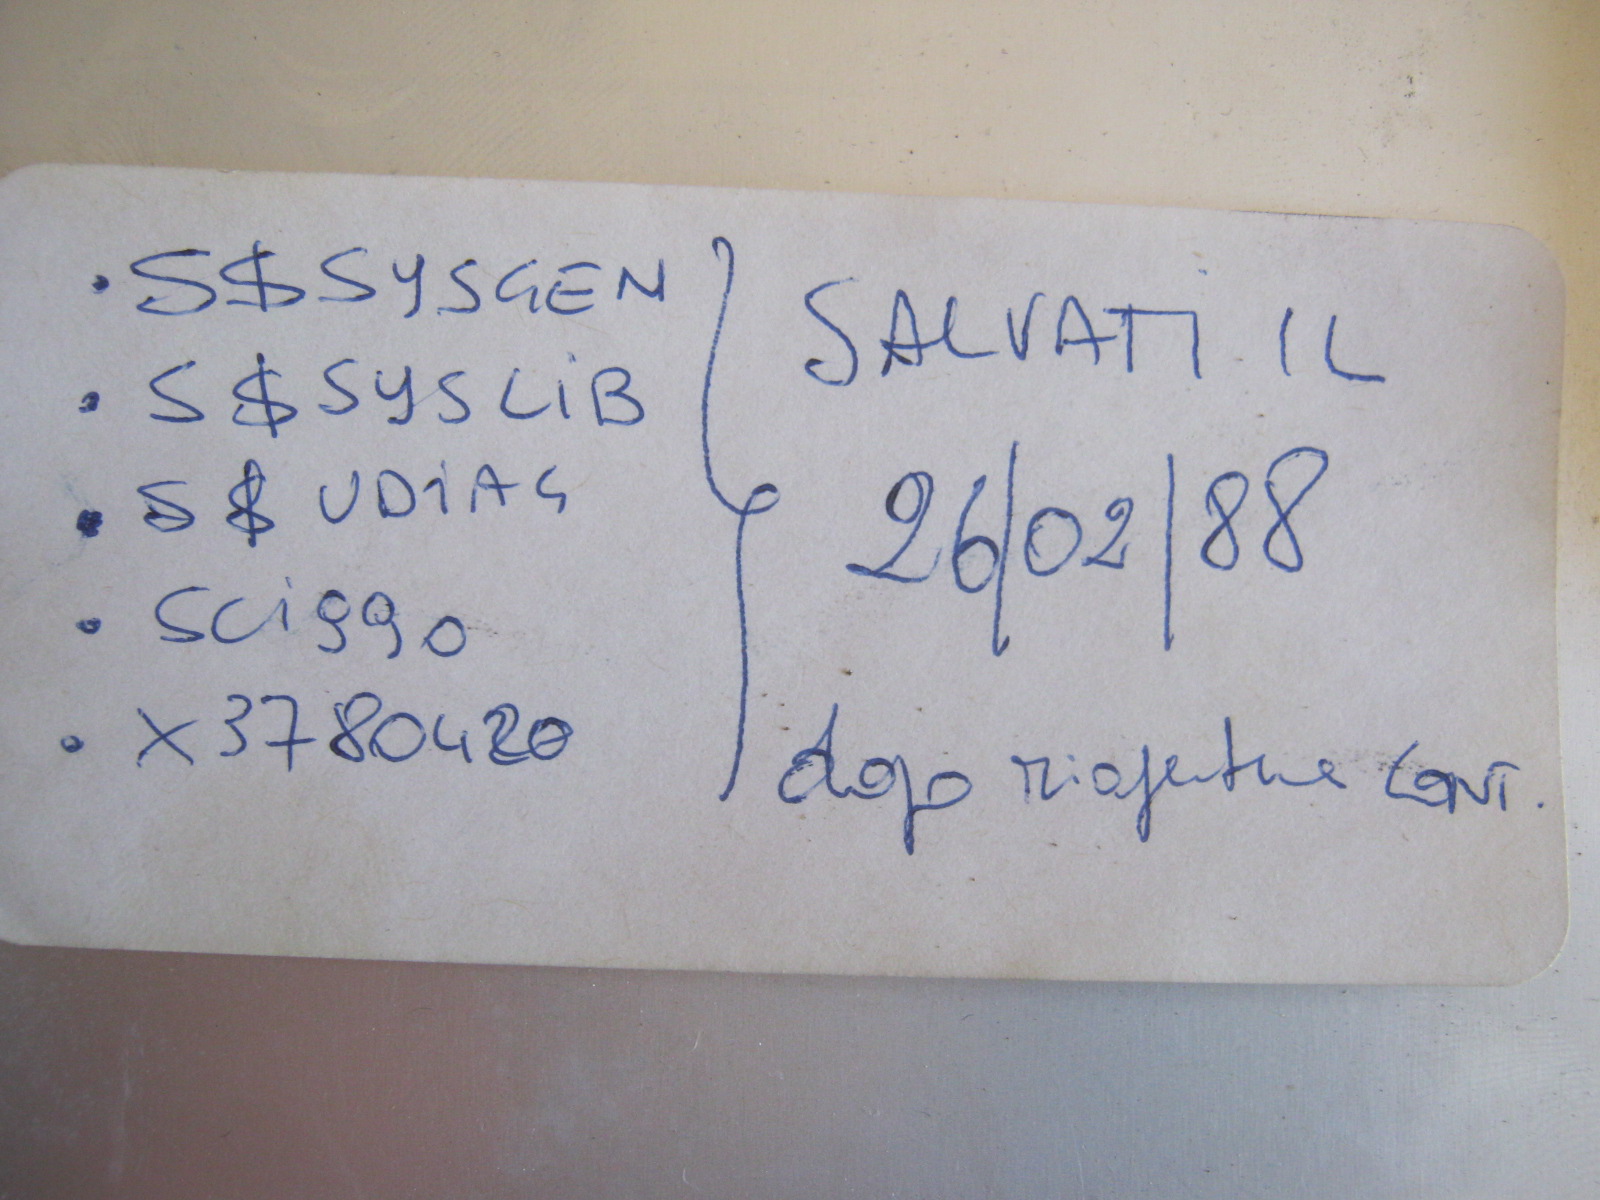 • S$SYSGEN
• S$SYSLIB
• S$UDIAG
• SCI990
• X3780420
SALVATI IL
26/02/88
dopo CONT.